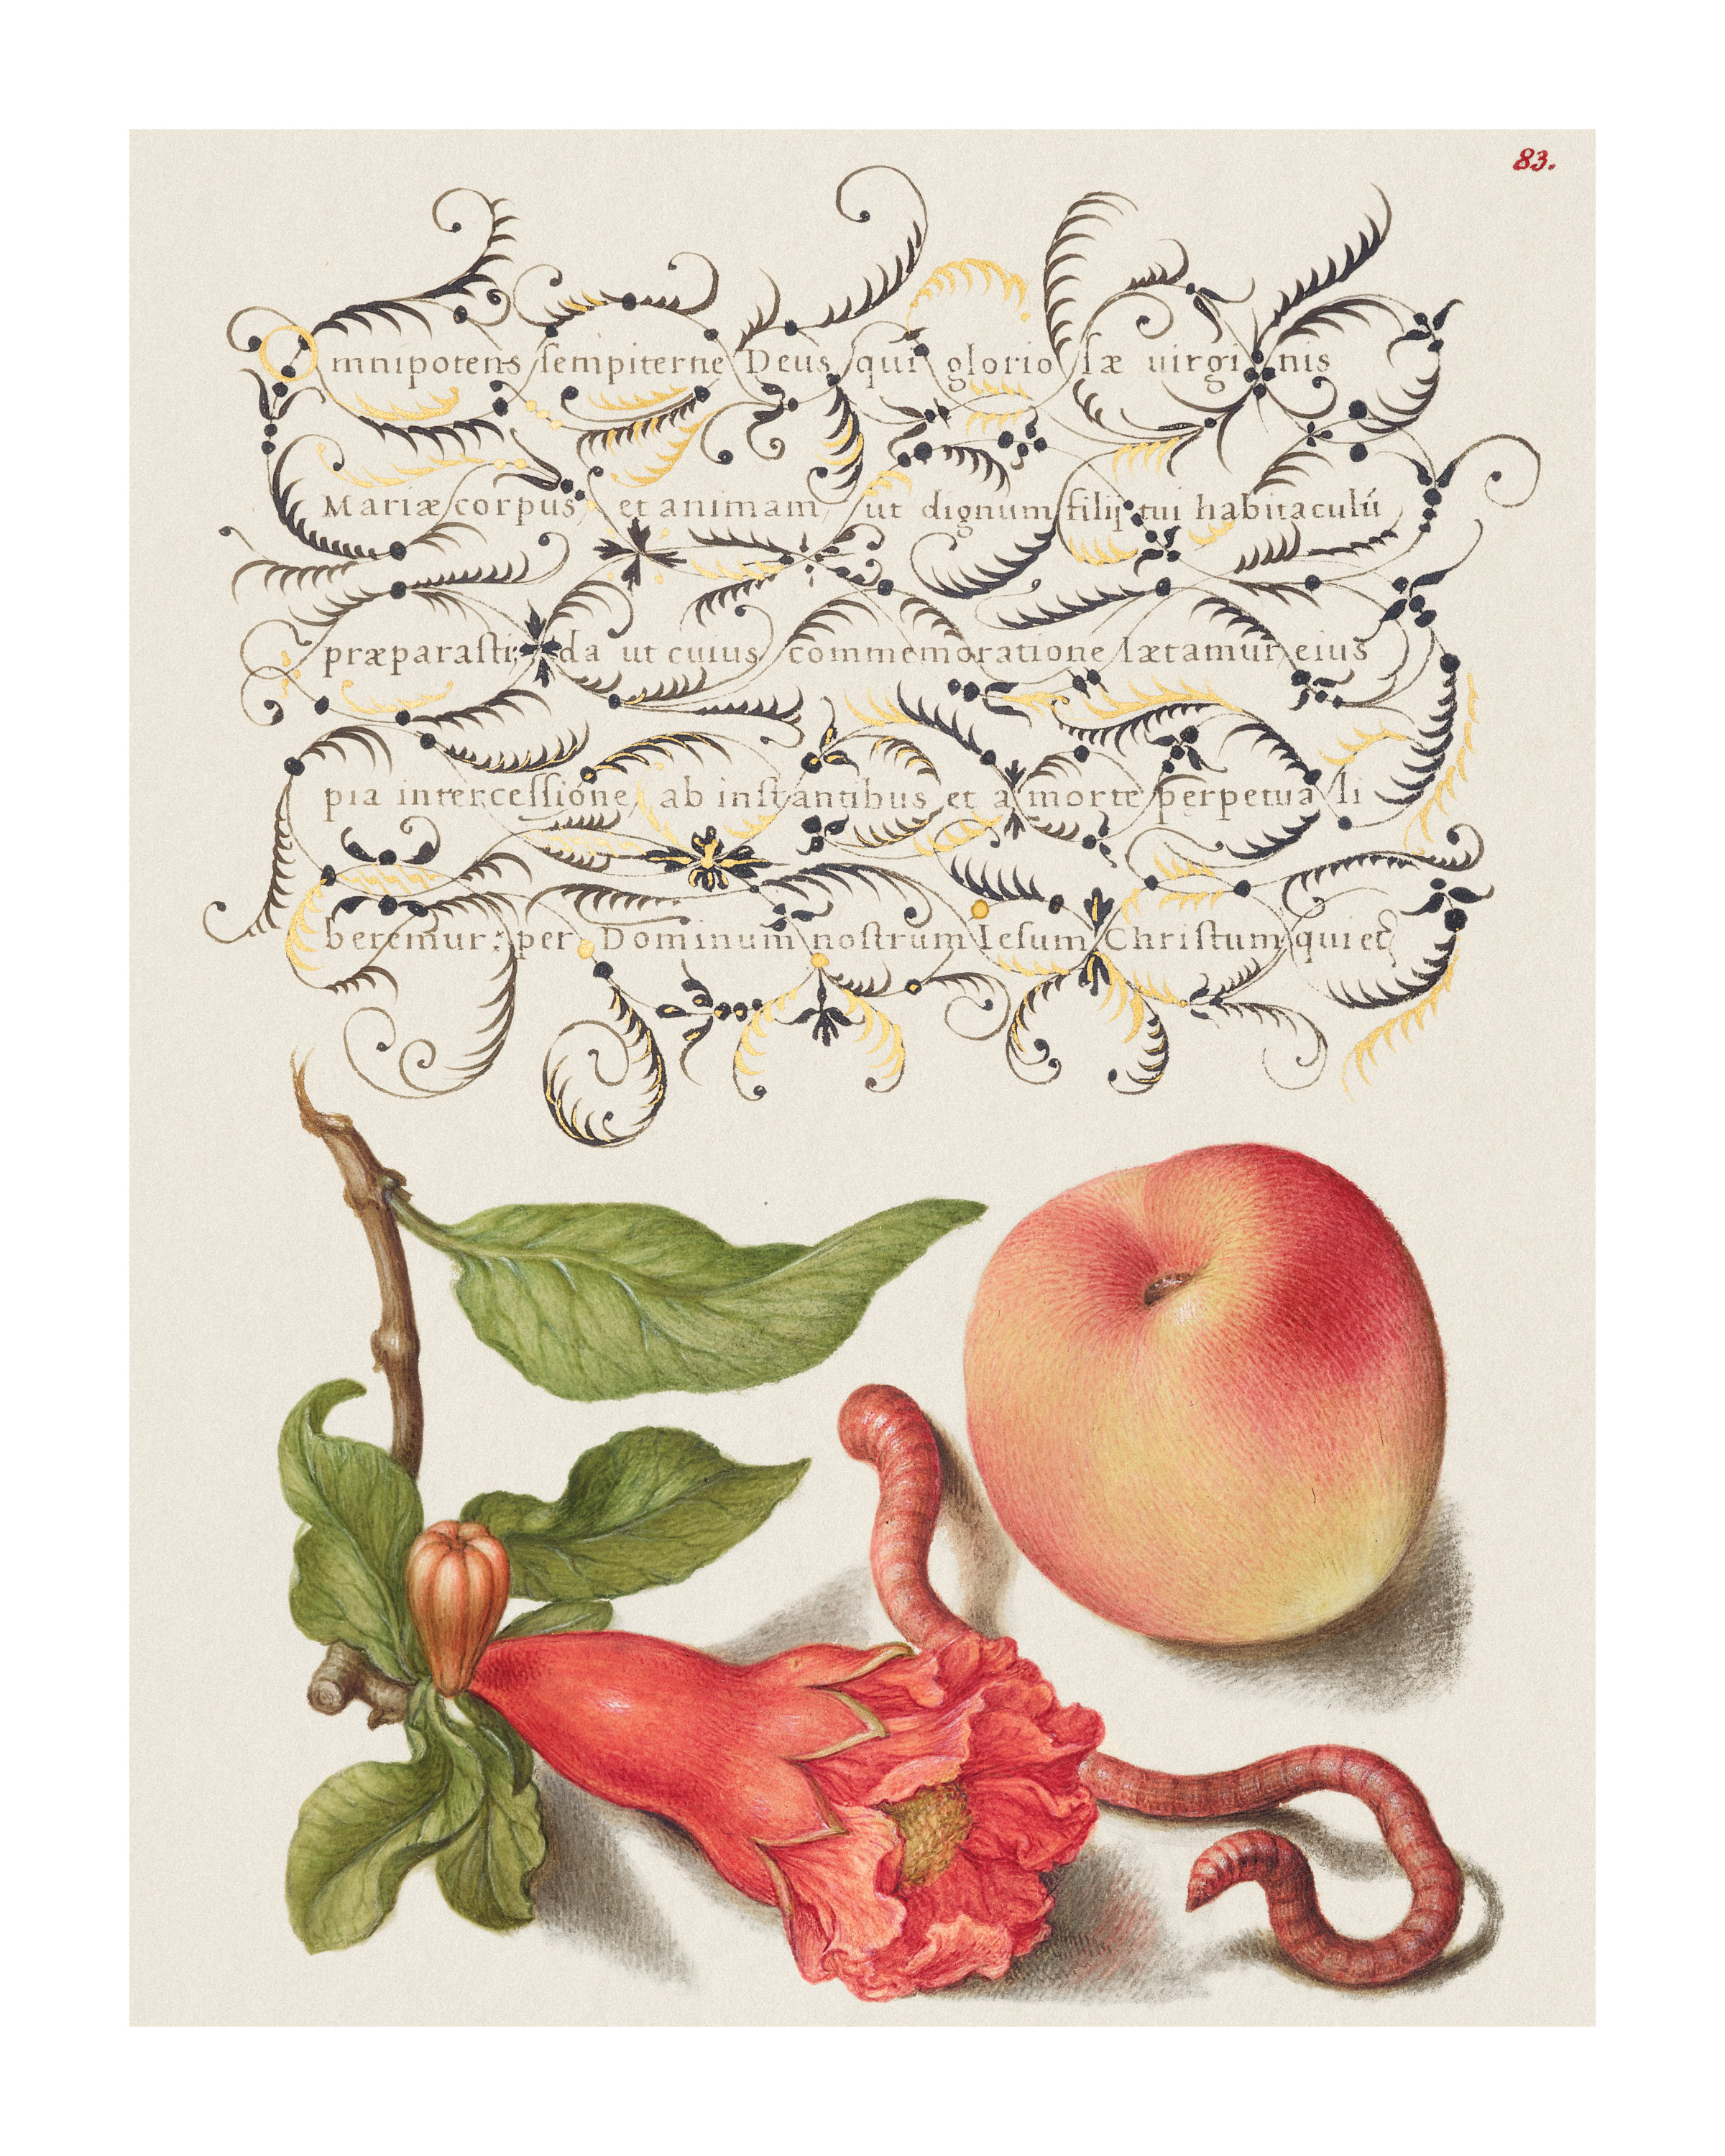 83.
Omnipotens ſempiterne Deus qui glorioſæ virginis
Mariæ corpus et animam ut dignum filij tui habitaculū
præparaſti; da ut cuius commemoratione lætamur eius
pia interceſſione ab inſtantibus et a morte perpetua li
beremur: per Dominum noſtrum Ieſum Chriſtum qui